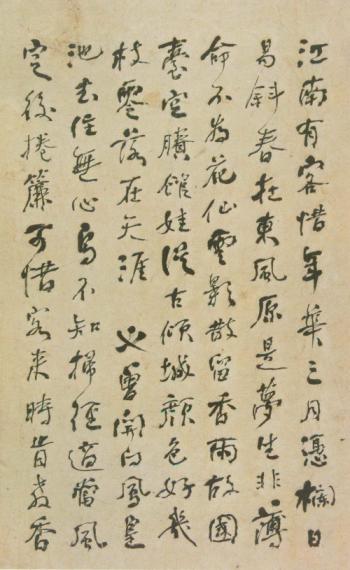 江南有客惜年華三月憑欄日
易斜春在東風原是夢生非薄
命不為花仙雲影散留香雨故國
臺空賸館娃從古傾城顏色好幾
枝零落在天涯 又曾開向鳳凰
池去住無心鳥不知掃徑適當風
定後捲簾可惜客來時昔